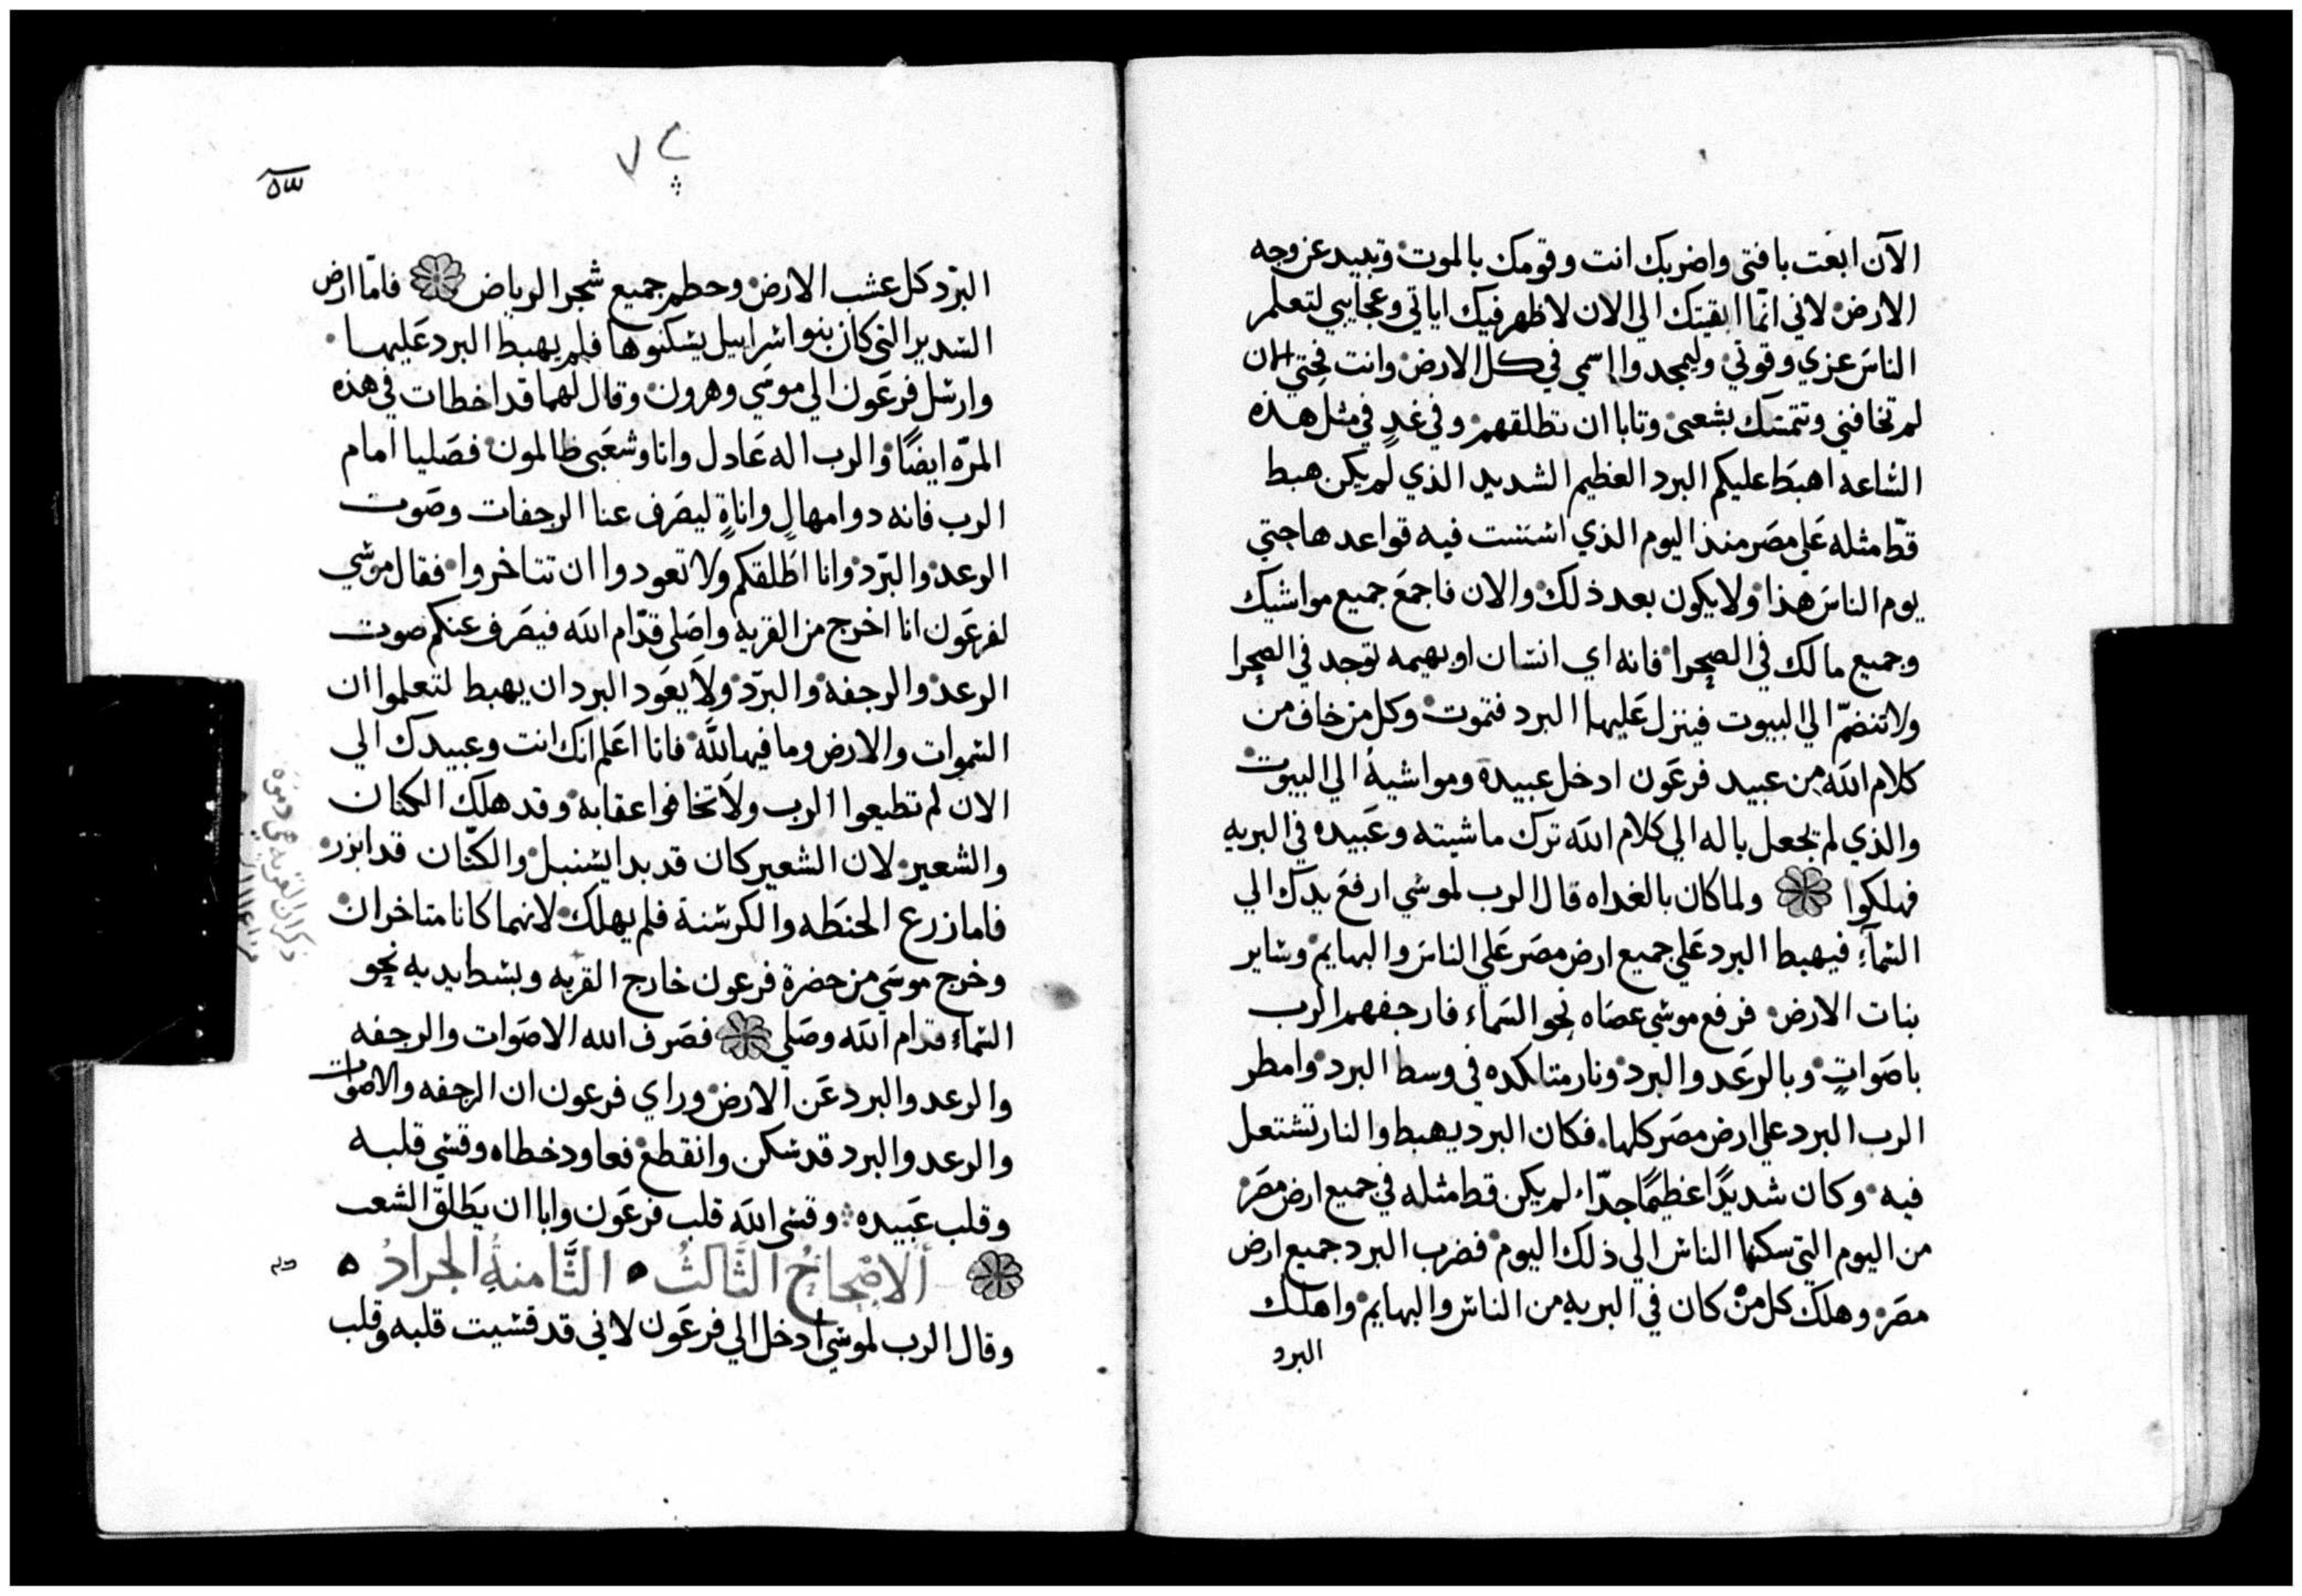 الآن ابعث بافتي واضربك انت وقومك بالموت وتبيد عن وجه
الارض لاني انما ابقيتك الي الان لاظهر فيك اياتي وعجايبي لتعلم
الناس عزي وقوتي وليمجدوا اسمي في كل الارض وانت فحتي الان
لم تخافني وتتمسك بشعبي وتابا ان تطلقهم وفي غدٍ في مثل هذه
الساعه اهبط عليكم البرد العظيم الشديد الذي لم يكن هبط
قطّ مثله علي مصر منذ اليوم الذي استست فيه قواعدها حتي
يوم الناس هذا ولا يكون بعد ذلك والان فاجمع جميع مواشيك
وجميع مالك في الصحرا فانه اي انسان او بهيمه توجد في الصحرا
ولا تنضمّ الي البيوت فينزل عليها البرد فتموت وكل من خاف من
كلام الله من عبيد فرعون ادخل عبيده ومواشيه الي البيوت
والذي لم يجعل باله الي كلام الله ترك ماشيته وعبيده في البريه
فهلكوا ولما كان بالغداه قال الرب لموسي ارفع يدك الي
السمآء فيهبط البرد علي جميع ارض مصر علي الناس والبهايم وساير
بنات الارض فرفع موسي عصاه نحو السماء فارجفهم الرب
باصواتٍ وبالرعد والبرد ونار متاكده في وسط البرد وامطر
الرب البرد علي ارض مصر كلها فكان البرد يهبط والنار تشتعل
فيه وكان شديدًا عظيمًا جدّا لم يكن قط مثله في جميع ارض مصر
من اليوم التي سكنها الناس الي ذلك اليوم فضرب البرد جميع ارض
مصر وهلك كل من كان في البريه من الناس والبهايم واهلك
البرد
البرّد كل عشب الارض وحطم جميع شجر الرياض فامّا ارض
السدير التي كان بنوا اسراييل يسكنوها فلم يهبط البرد عليها
وارسل فرعون الي موسي وهرون وقال لهما قد اخطات في هذه
المرّه ايضًا والرب اله عادل وانا وشعبي ظالمون فصليا امام
الرب فانه دوامهالٍ واناةٍ ليصرف عنا الرجفات وصوت
الرعد والبرّد وانا اطلقكم ولا تعودوا ان تتاخروا فقال موسي
لفرعون انا اخرج من القريه واصلي قدّام الله فيصرف عنكم صوت
الرعد والرجفه والبرّد ولا يعود البرد ان يهبط لتعلموا ان
السموات والارض وما فيها لله فانا اعلم انك انت وعبيدك الي
الان لم تطيعوا الرب ولا تخافوا عقابه وقد هلك الكتان
والشعير لان الشعير كان قد بدا يسنبل والكتّان قد ابزر
فاما زرع الحنطه والكرسنة فلم يهلك لانهما كانا متاخران
وخرج موسي من حضرة فرعون خارج القريه وبسط يديه نحو
السماء قدام الله وصلي فصرف الله الاصوات والرجفه
والرعد والبرد عن الارض وراي فرعون ان الرجفه والاصوات
والرعد والبرد قد سكن وانقطع فعاود خطاه وقسي قلبه
وقلب عبيده وقسي الله قلب فرعون وابا ان يطلق الشعب
ألاصْحاحُ الثَّالثُ الثَّامنةِ الجرادُ
وقال الرب لموسي ادخل الي فرعون لاني قد قسيت قلبه وقلب